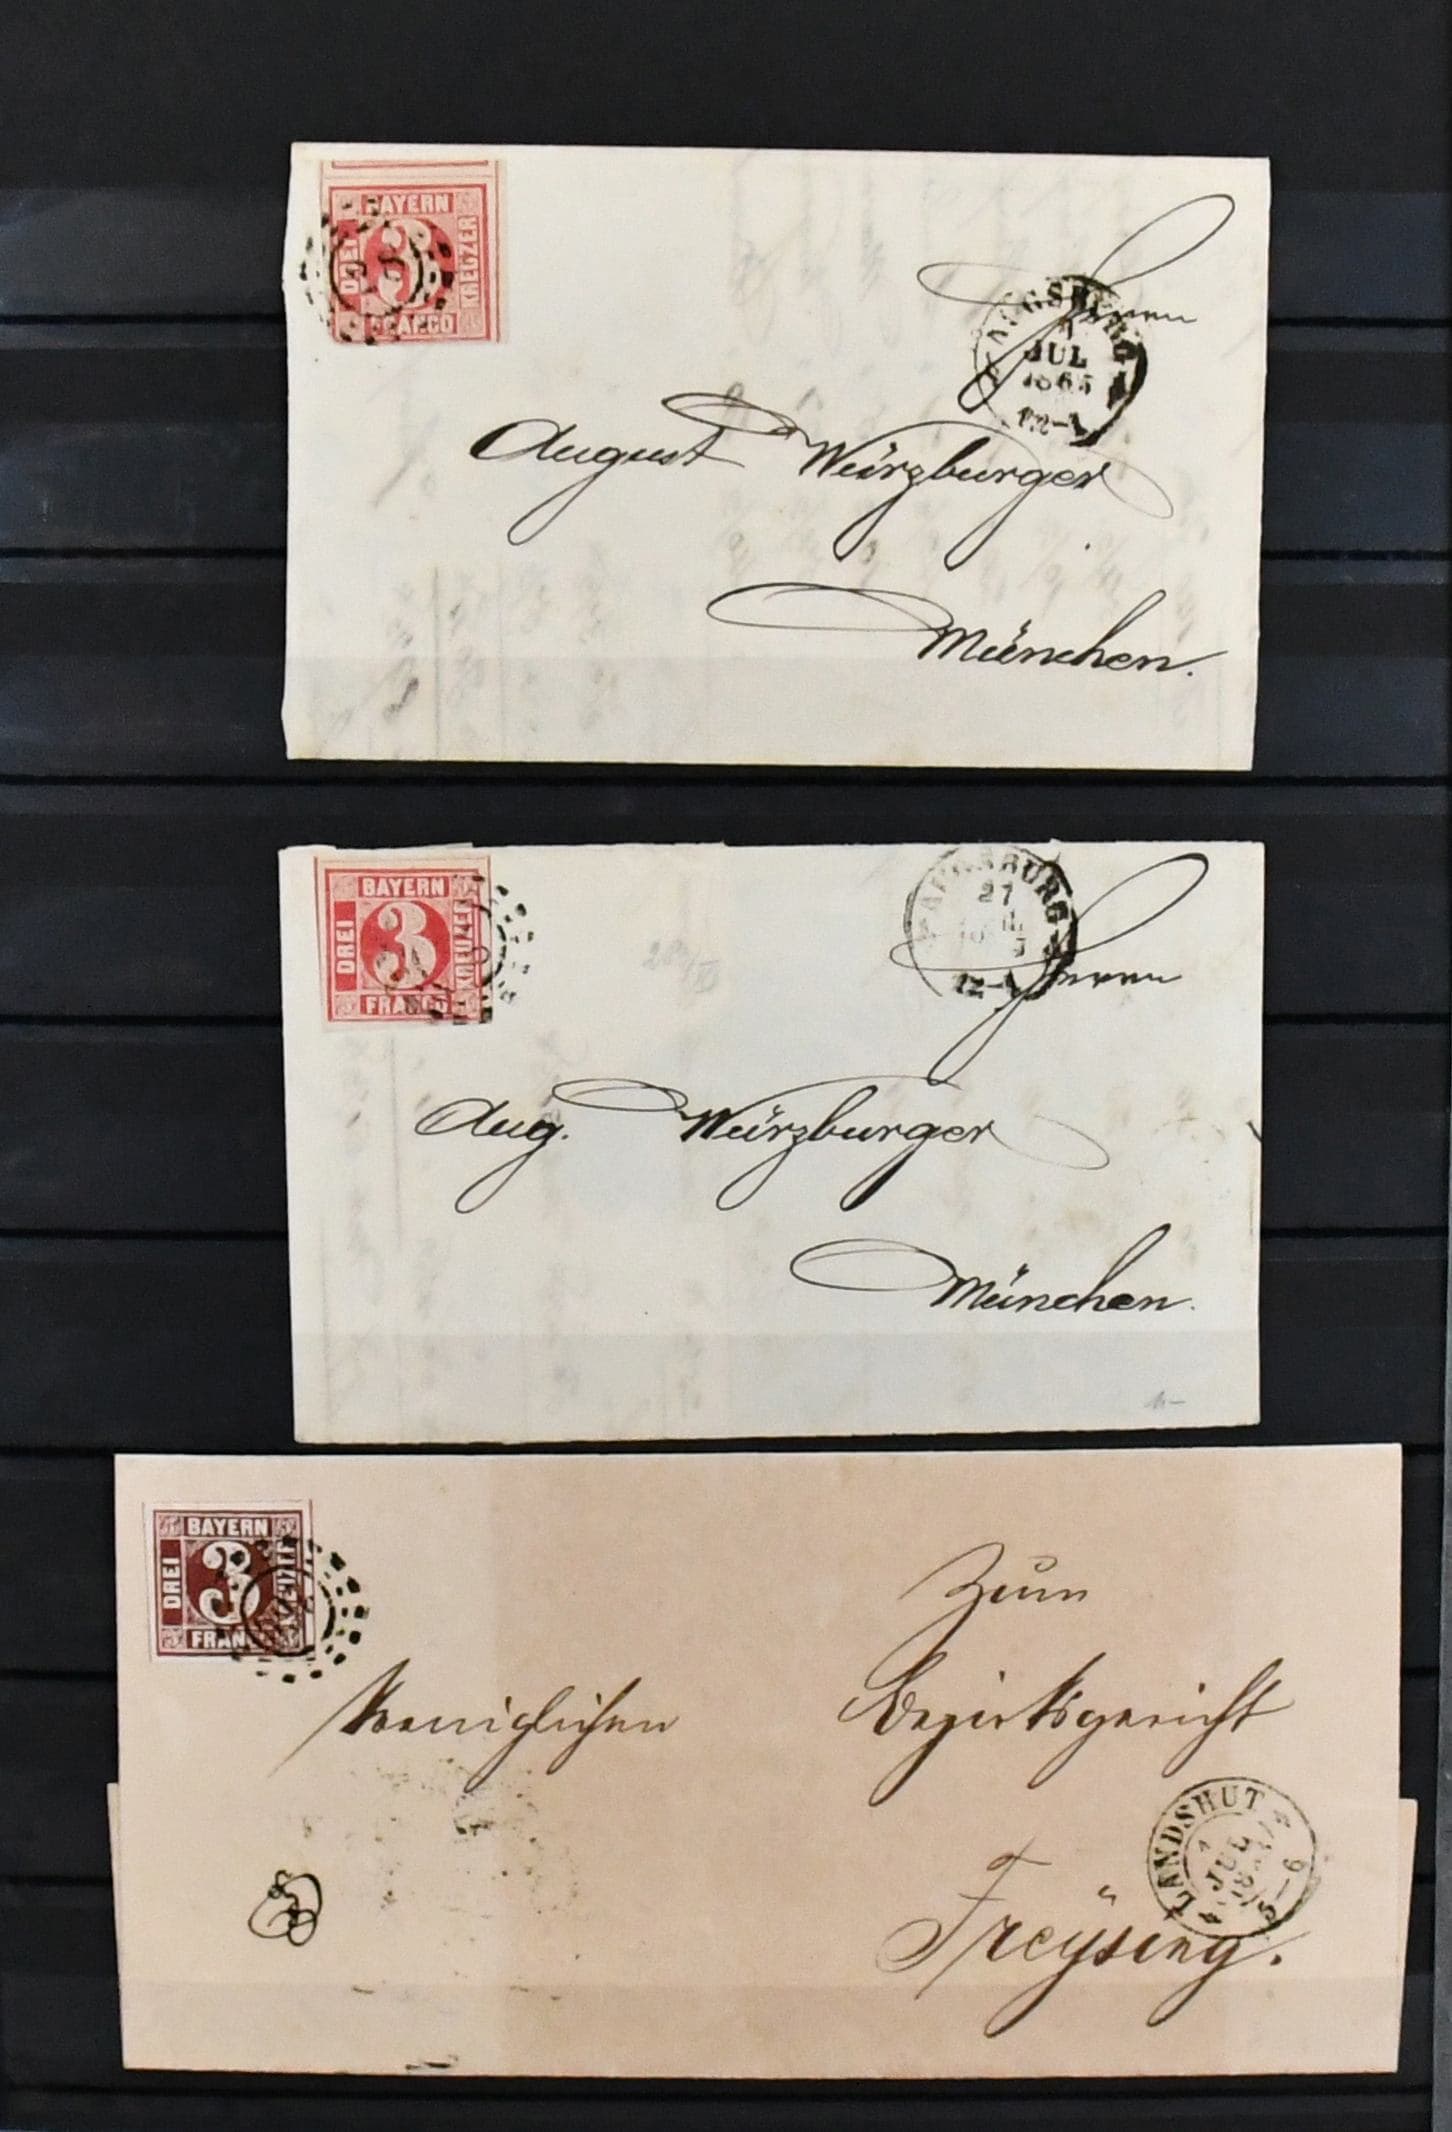 BAYERN
DREI
3
KREUZER
FRANCO
AUGSBURG
JUL
1865
12-1
Herrn
August Würzburger
München.
BAYERN
DREI
3
KREUZER
FRANCO
AUGSBURG
27
12-1
Herrn
Aug. Würzburger
München.
BAYERN
DREI
3
KREUZER
FRANCO
Zum
Koeniglichen Bezirksgericht
Freÿsing.
LANDSHUT
JUL
5-6